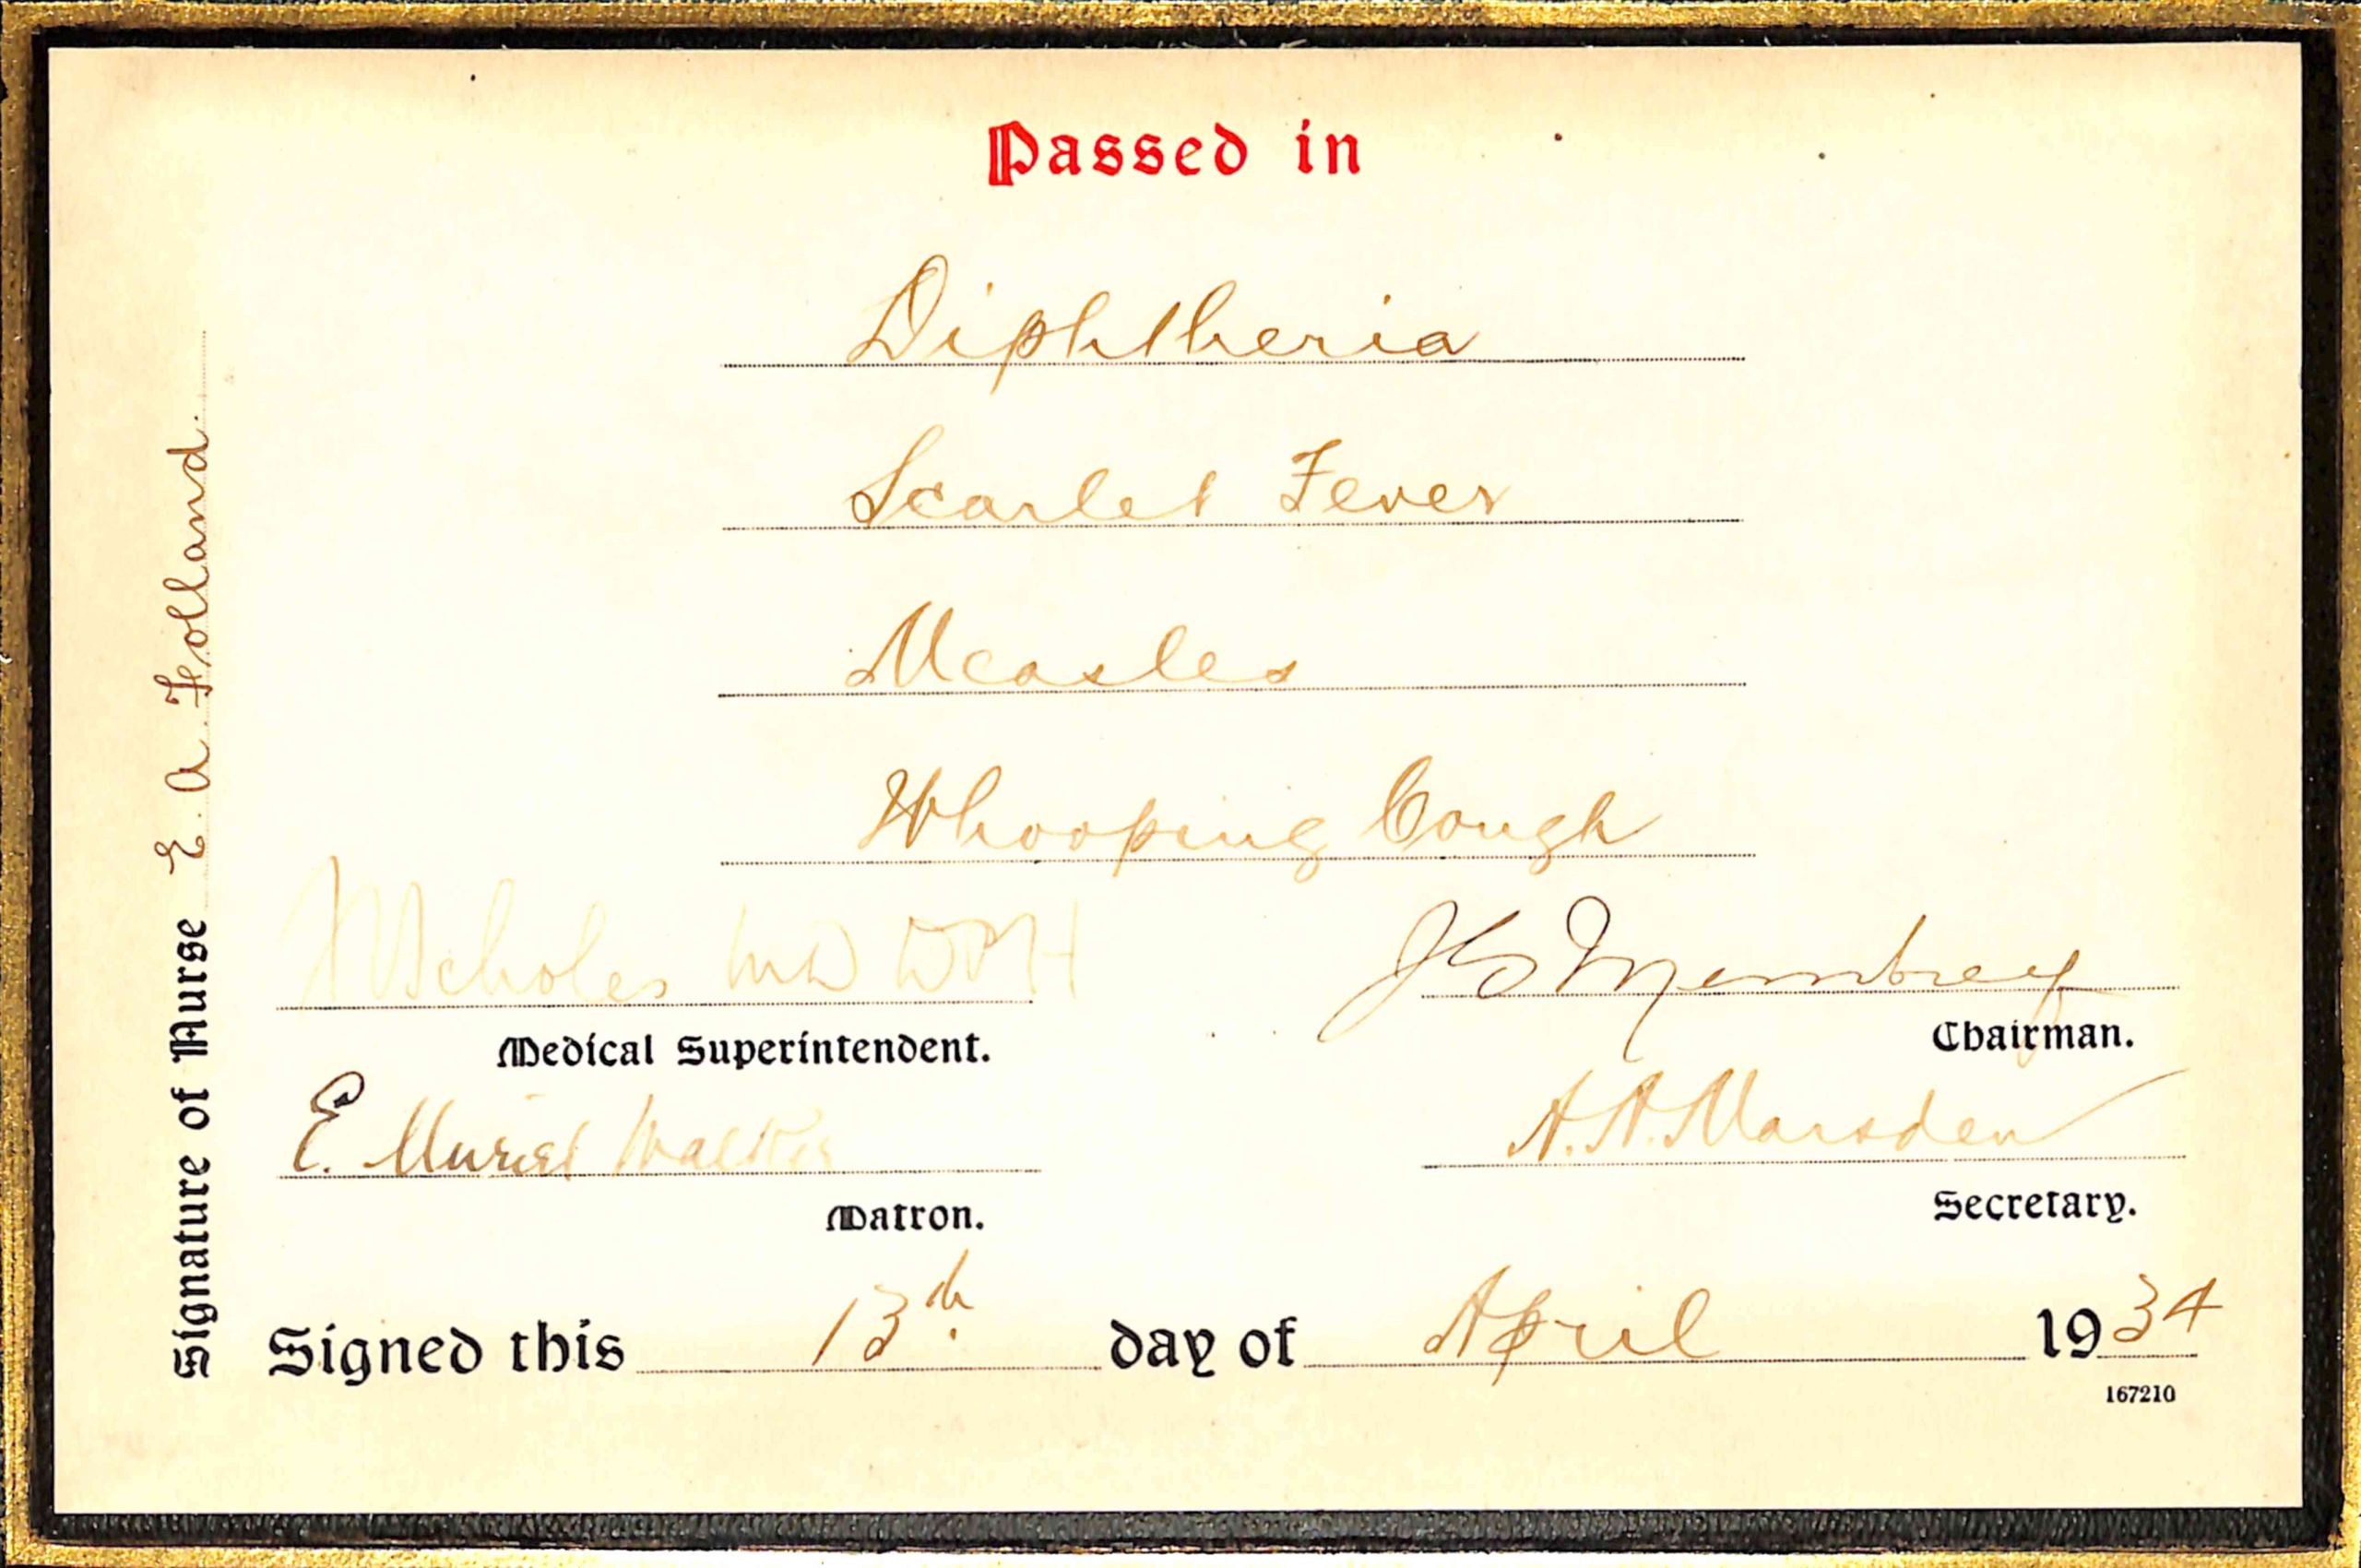 Passed in
Diphtheria
Scarlet Fever
Measles
Whooping Cough
Scholes MD DPH
Medical Superintendent.
J G Membrey
Chairman.
E. Muriel Walker
Matron.
A. A. Marsden
Secretary.
Signed this 13th. day of April 1934
167210
Signature of Nurse E. A. Folland.